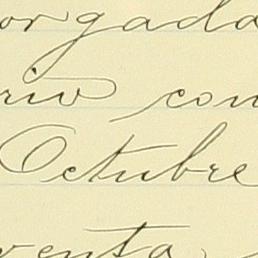 orgada
rio con
Octubre
venta